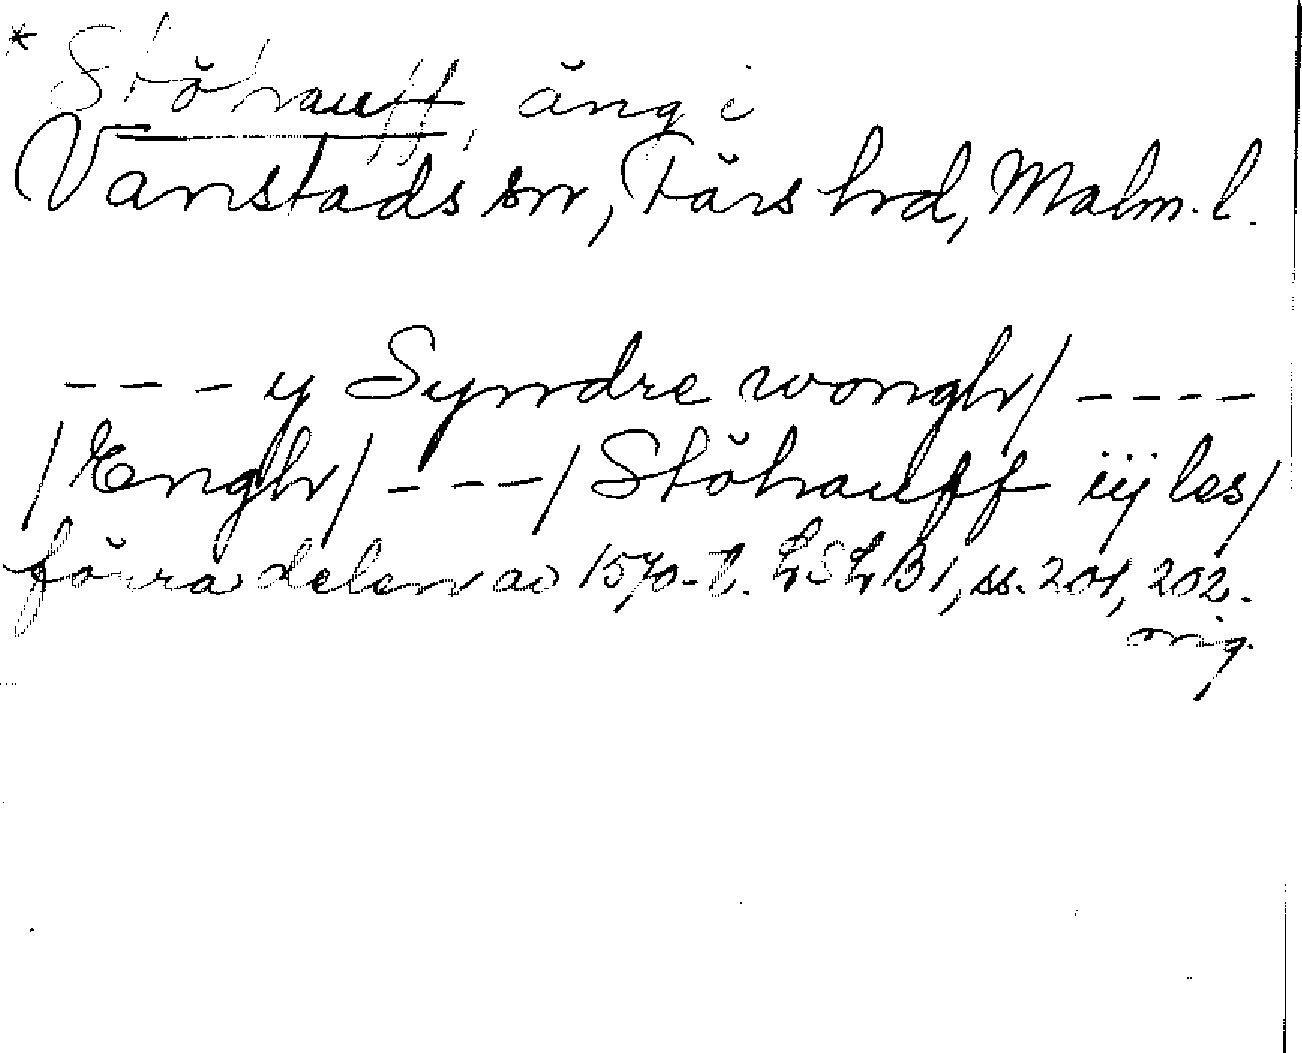 * Stöhauff, äng i
Vanstads sn, Färs hrd, Malm. l.
- - - y Syndre wongh / - - - -
/ Engh / - - - / Stöhauff iij les /
förra delen av 1570-t. LSLB1, ss. 201, 202.
orig.